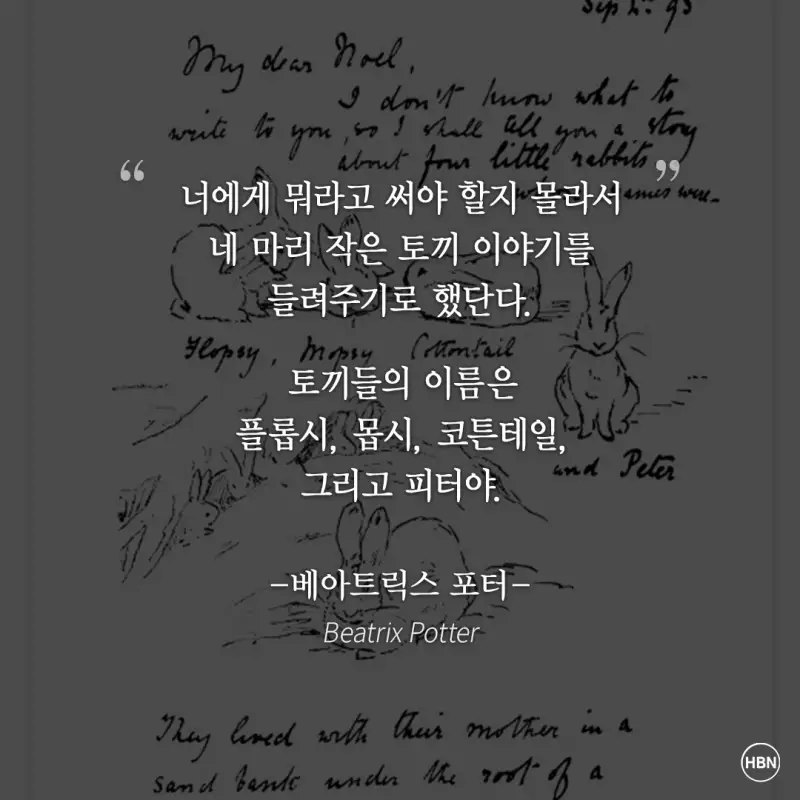 Sep 4th 93
My dear Noel,
I don't know what to
write to you, so I shall tell you a story
about four little rabbits
names were
“ 너에게 뭐라고 써야 할지 몰라서 ”
네 마리 작은 토끼 이야기를
들려주기로 했단다.
Flopsy, Mopsy Cottontail
토끼들의 이름은
플롭시, 몹시, 코튼테일,
and Peter
그리고 피터야.
–베아트릭스 포터–
Beatrix Potter
They lived with their mother in a
sand bank under the root of a
HBN